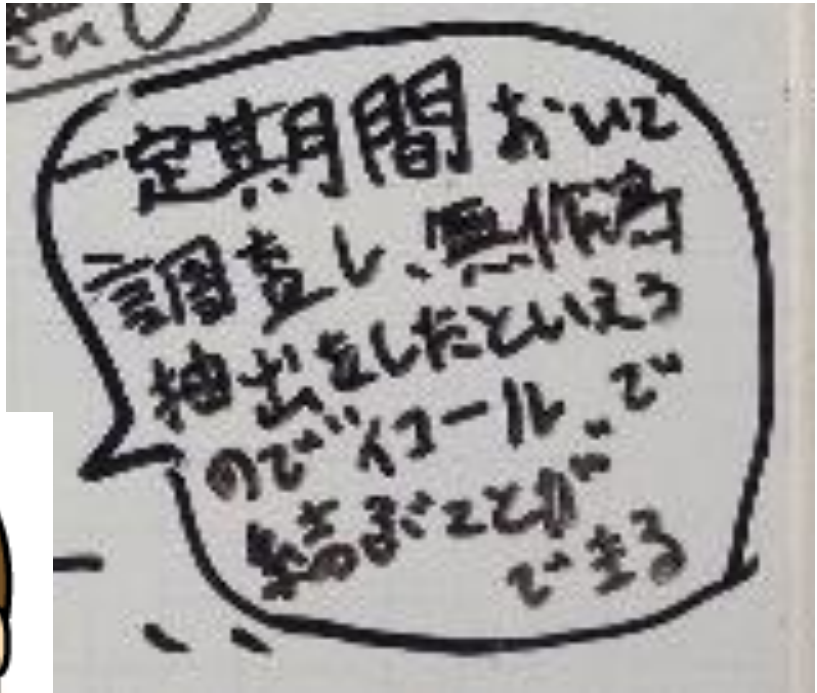 一定期間おいて
調査し、無作為
抽出をしたといえる
のでイコールで
結ぶことが
できる